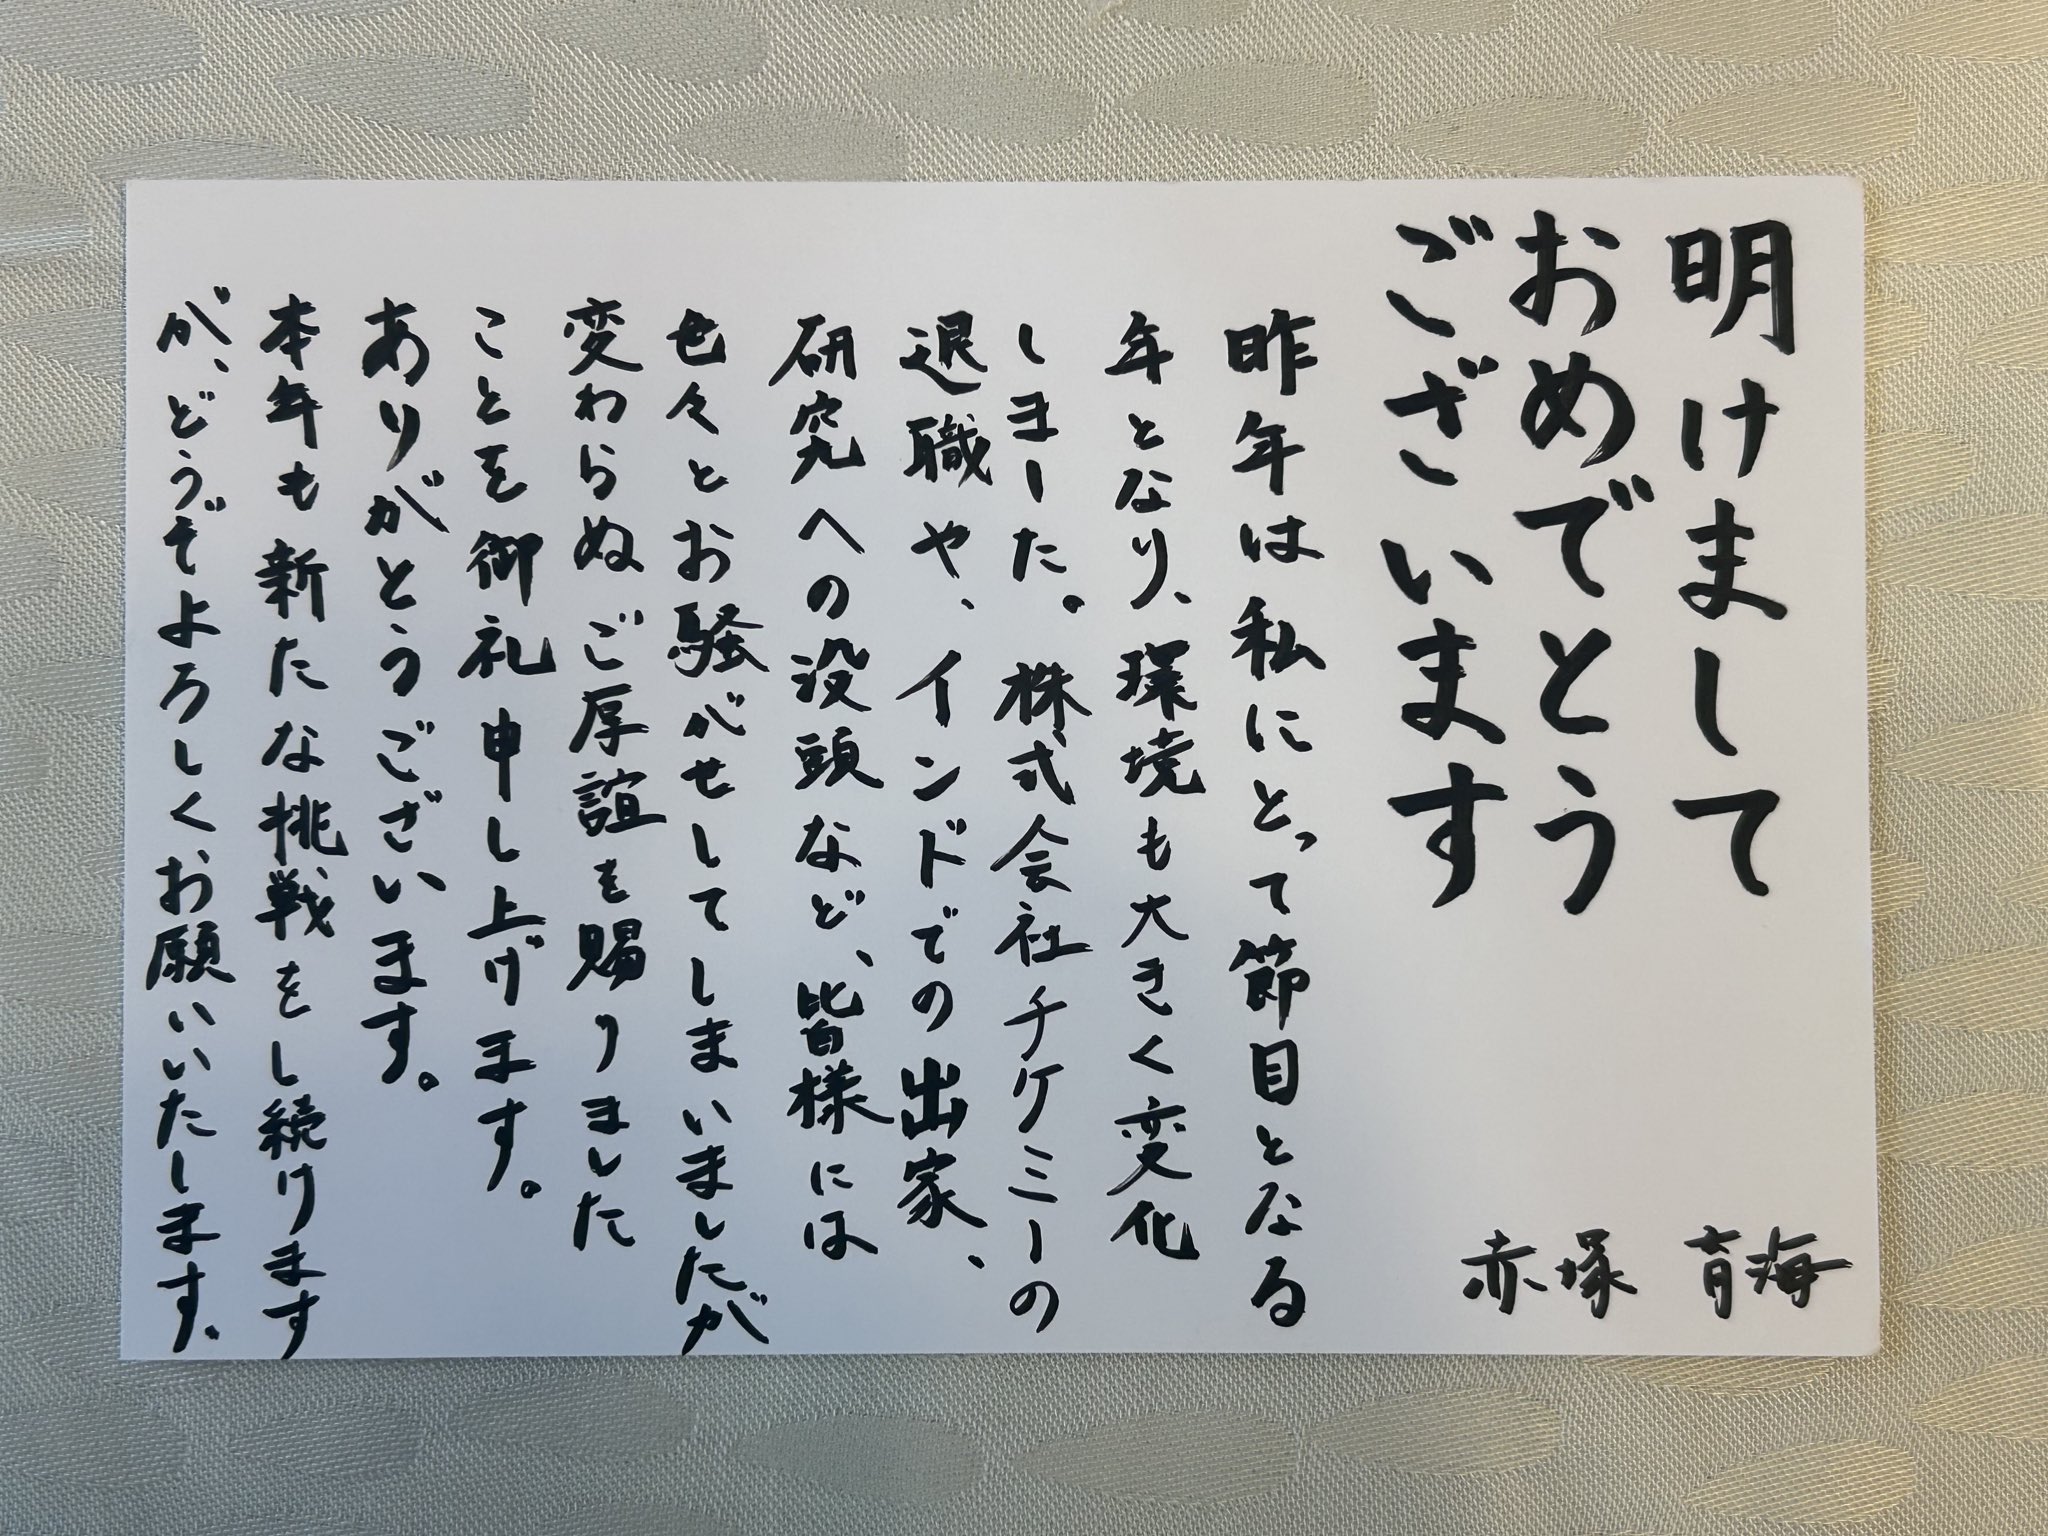 明けまして
おめでとう
ございます
赤塚 育海
昨年は私にとって節目となる
年となり、環境も大きく変化
しました。株式会社チケミーの
退職や、インドでの出家、
研究への没頭など、皆様には
色々とお騒がせしてしまいましたが
変わらぬご厚誼を賜りました
ことを御礼申し上げます。
ありがとうございます。
本年も新たな挑戦をし続けます
が、どうぞよろしくお願いいたします。